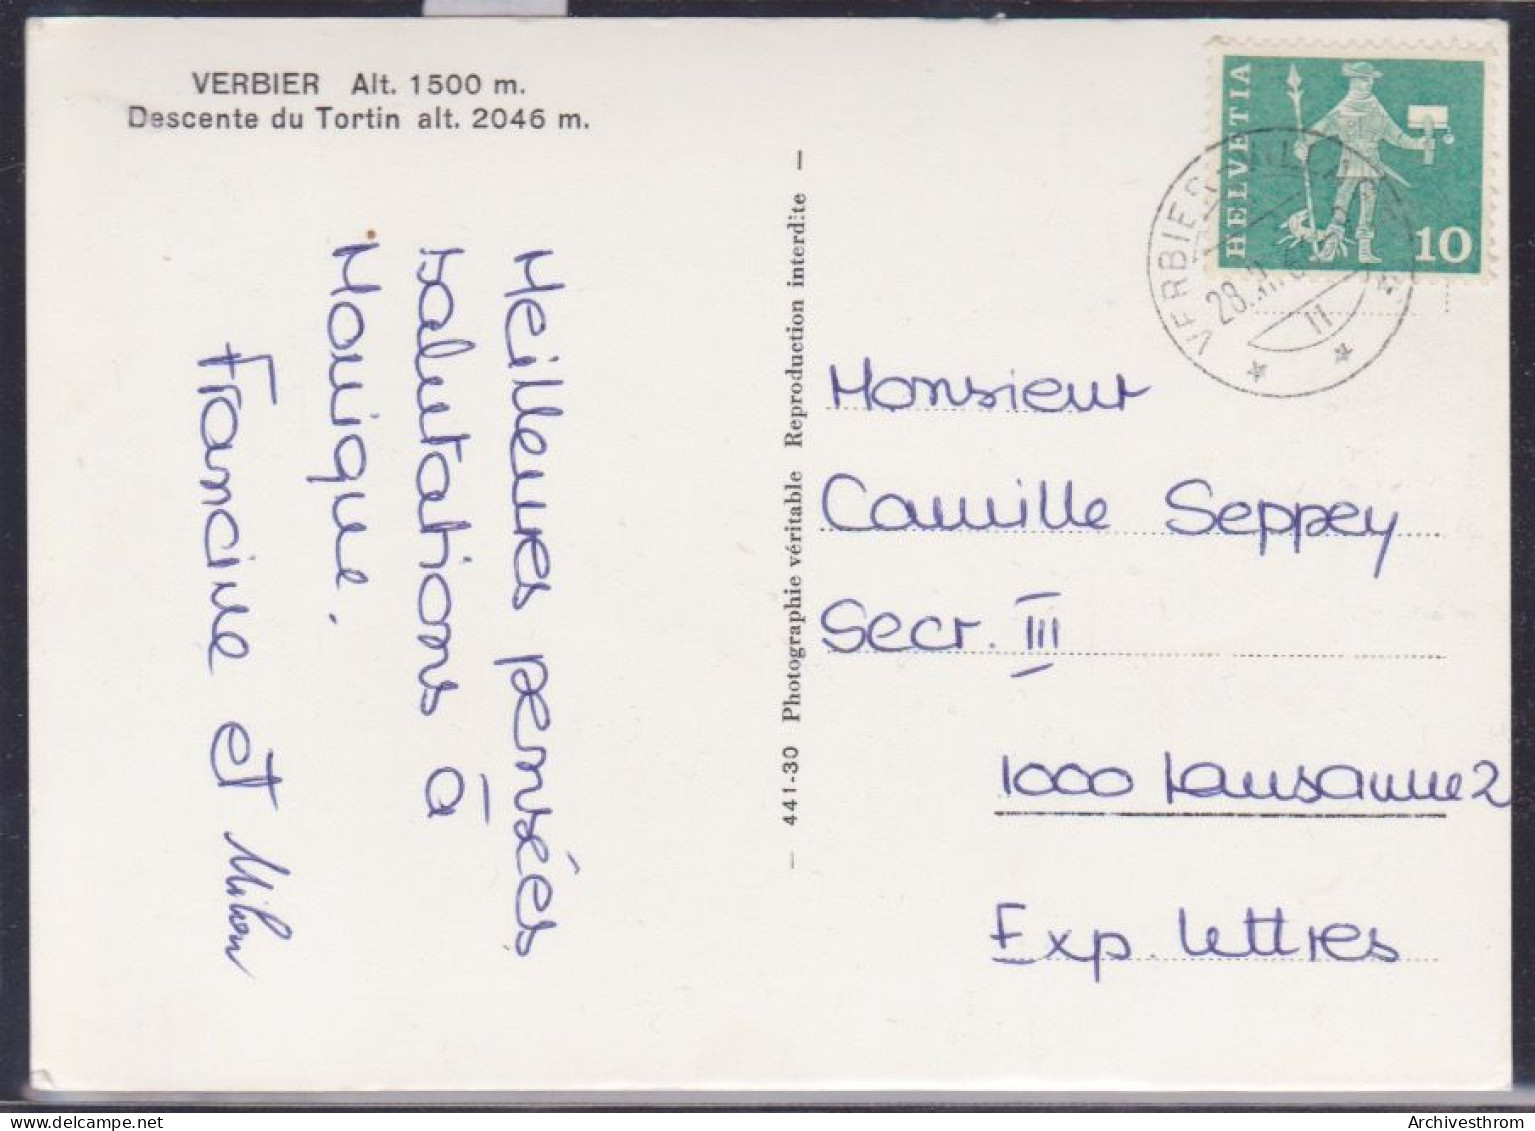 VERBIER Alt. 1500 m.
Descente du Tortin alt. 2046 m.
Meilleures pensées
salutations à
Monique.
Francine et
— 441-30 Photographie véritable Reproduction interdite —
HELVETIA
10
VERBIER
28.
11
Monsieur
Camille Seppey
Secr. III
1000 Lausanne 2
Exp. lettres
Archivesthrom